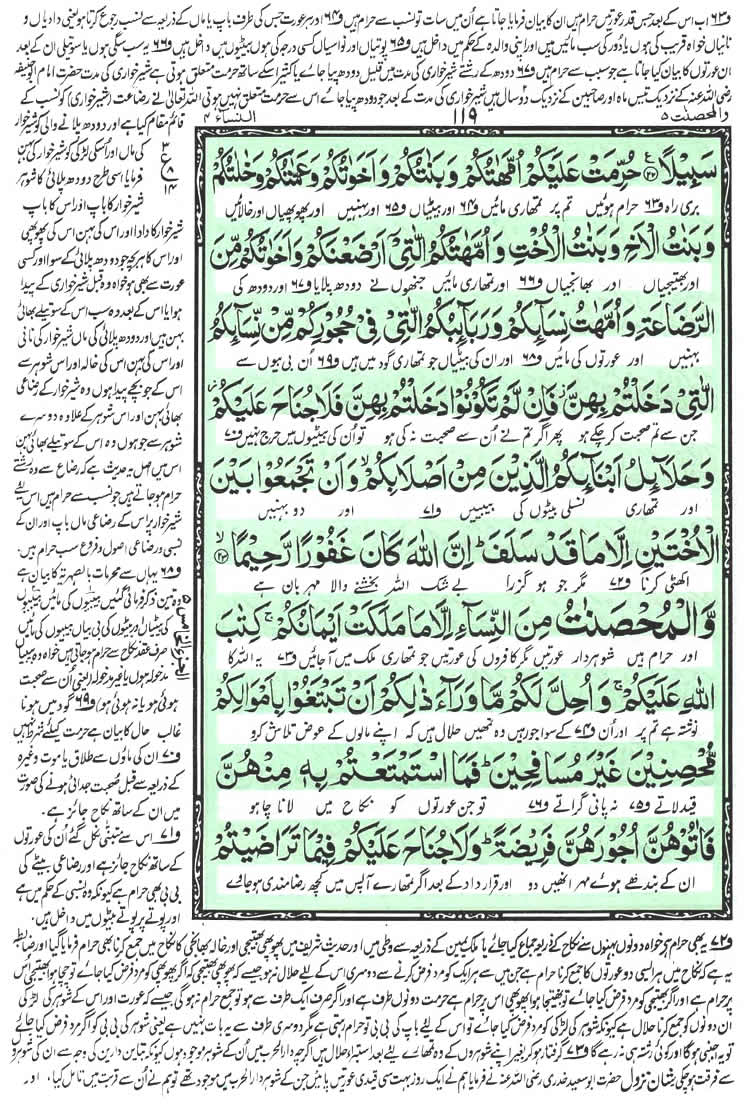 و۶۳ اب اس کے بعد جس قدر عورتیں حرام ہیں ان کا بیان فرمایا جاتا ہے اُن میں سات تو نسب سے حرام ہیں و۶۴ اور ہر عورت جس کی طرف باپ یا ماں کے ذریعہ سے نسب رجوع کرتا ہو یعنی دادیاں و
نانیاں خواہ قریب کی ہوں یا دُور کی سب مائیں ہیں اور اپنی والدہ کے حکم میں داخل ہیں و۶۵ پوتیاں اور نواسیاں کسی درجہ کی ہوں بیٹیوں میں داخل ہیں و۶۶ یہ سب سگی ہوں یا سوتیلی ان کے بعد
ان عورتوں کا بیان کیا جاتا ہے جو سبب سے حرام ہیں و۶۷ دودھ کے رشتے شیر خواری کی مدت میں قلیل دودھ پیا جائے یا کثیر اسکے ساتھ حرمت متعلق ہوتی ہے شیر خواری کی مدت حضرت امام ابوحنیفہ
رضی اللہ عنہ کے نزدیک تیس ماہ اور صاحبین کے نزدیک دو سال ہیں شیر خواری کی مدت کے بعد جو دودھ پیا جائے اس سے حرمت متعلق نہیں ہوتی اللہ تعالیٰ نے رضاعت (شیر خواری) کو نسب کے
والمحصنت ۵
۱۱۹
النساء ۴
سَبِيلًا ﴿۲۲﴾ حُرِّمَتْ عَلَيْكُمْ اُمَّهٰتُكُمْ وَ بَنٰتُكُمْ وَ اَخَوٰتُكُمْ وَ عَمّٰتُكُمْ وَ خٰلٰتُكُمْ
بری راہ و۶۳ حرام ہوئیں تم پر تمھاری مائیں و۶۴ اور بیٹیاں و۶۵ اور بہنیں اور پھوپھیاں اور خالائیں
وَ بَنٰتُ الْاَخِ وَ بَنٰتُ الْاُخْتِ وَ اُمَّهٰتُكُمُ الّٰتِیْۤ اَرْضَعْنَكُمْ وَ اَخَوٰتُكُمْ مِّنَ
اور بھتیجیاں اور بھانجیاں و۶۶ اور تمھاری مائیں جنھوں نے دودھ پلایا و۶۷ اور دودھ کی
الرَّضَاعَةِ وَ اُمَّهٰتُ نِسَآىِٕكُمْ وَ رَبَآىِٕبُكُمُ الّٰتِیْ فِیْ حُجُوْرِكُمْ مِّنْ نِّسَآىِٕكُمُ
بہنیں اور عورتوں کی مائیں و۶۸ اور ان کی بیٹیاں جو تمھاری گود میں ہیں و۶۹ اُن بی بیوں سے
الّٰتِیْ دَخَلْتُمْ بِهِنَّ٘ فَاِنْ لَّمْ تَكُوْنُوْا دَخَلْتُمْ بِهِنَّ فَلَا جُنَاحَ عَلَيْكُمْ٘
جن سے تم صحبت کر چکے ہو پھر اگر تم نے اُن سے صحبت نہ کی ہو تو اُن کی بیٹیوں میں حرج نہیں و۷۰
وَ حَلَآىِٕلُ اَبْنَآىِٕكُمُ الَّذِيْنَ مِنْ اَصْلَابِكُمْۙ وَ اَنْ تَجْمَعُوْا بَيْنَ
اور تمھاری نسلی بیٹوں کی بیبییں و۷۱ اور دو بہنیں
الْاُخْتَيْنِ اِلَّا مَا قَدْ سَلَفَؕ اِنَّ اللّٰهَ كَانَ غَفُوْرًا رَّحِيْمًاۙ ﴿۲۳﴾
اکٹھی کرنا و۷۲ مگر جو ہو گزرا بے شک اللہ بخشنے والا مہربان ہے
وَّ الْمُحْصَنٰتُ مِنَ النِّسَآءِ اِلَّا مَا مَلَكَتْ اَيْمَانُكُمْۚ كِتٰبَ
اور حرام ہیں شوہر دار عورتیں مگر کافروں کی عورتیں جو تمھاری ملک میں آجائیں و۷۳ یہ اللہ کا
اللّٰهِ عَلَيْكُمْۚ وَ اُحِلَّ لَكُمْ مَّا وَرَآءَ ذٰلِكُمْ اَنْ تَبْتَغُوْا بِاَمْوَالِكُمْ
نوشتہ ہے تم پر اور اُن و۷۴ کے سوا جو رہیں وہ تمھیں حلال ہیں کہ اپنے مالوں کے عوض تلاش کرو
مُّحْصِنِيْنَ غَيْرَ مُسَافِحِيْنَؕ فَمَا اسْتَمْتَعْتُمْ بِهٖ مِنْهُنَّ
قید لاتے و۷۵ نہ پانی گراتے و۷۶ تو جن عورتوں کو نکاح میں لانا چاہو
فَاٰتُوْهُنَّ اُجُوْرَهُنَّ فَرِيْضَةًؕ وَ لَا جُنَاحَ عَلَيْكُمْ فِيْمَا تَرٰضَيْتُمْ
ان کے بندھے ہوئے مہر انھیں دو اور قرارداد کے بعد اگر تمھارے آپس میں کچھ رضامندی ہو جاوے
قائم مقام کیا ہے اور دودھ پلانے والی کو شیر خوار
کی ماں اور اسکی لڑکی کو شیر خوار کی بہن
فرمایا اسی طرح دودھ پلائی کا شوہر
شیر خوار کا باپ اور اس کا باپ
شیر خوار کا دادا اور اس کی بہن اس کی پھوپھی
اور اس کا ہر بچہ جو دودھ پلائی کے سوا اور کسی
عورت سے بھی ہو خواہ وہ قبل شیر خواری کے پیدا
ہوا یا اس کے بعد وہ سب اس کے سوتیلے بھائی
بہن ہیں اور دودھ پلائی کی ماں شیر خوار کی نانی
اور اس کی بہن اس کی خالہ اور اس شوہر سے
اس کے جو بچے پیدا ہوں وہ شیر خوار کے رضاعی
بھائی بہن اور اس شوہر کے علاوہ دوسرے
شوہر سے جو ہوں وہ اس کے سوتیلے بھائی بہن
اس میں اصل یہ حدیث ہے کہ رضاع سے وہ رشتے
حرام ہو جاتے ہیں جو نسب سے حرام ہیں اس لئے
شیر خوار پر اس کے رضاعی ماں باپ اور ان کے
نسبی و رضاعی اصول و فروع سب حرام ہیں۔
و۶۸ یہاں سے محرمات بالصہریۃ کا بیان ہے
وہ تین ذکر فرمائی گئیں بیبیوں کی مائیں، بیبیوں
کی بیٹیاں اور بیٹوں کی بی بیاں بیبیوں کی مائیں
صرف عقد نکاح سے حرام ہو جاتی ہیں خواہ وہ بیبیاں
مدخولہ ہوں یا غیر مدخولہ (یعنی اُن سے صحبت
ہوئی ہو یا نہ ہوئی ہو) و۶۹ گود میں ہونا
غالب حال کا بیان ہے حرمت کیلئے شرط نہیں
و۷۰ ان کی ماؤں سے طلاق یا موت وغیرہ
کے ذریعہ سے قبل صحبت جدائی ہونے کی صورت
میں ان کے ساتھ نکاح جائز ہے۔
و۷۱ اس سے متبنی نکل گئے اُن کی عورتوں
کے ساتھ نکاح جائز ہے اور رضاعی بیٹے کی
بی بی بھی حرام ہے کیونکہ وہ نسبی کے حکم میں ہے
اور پوتے پر پوتے بیٹوں میں داخل ہیں۔
و۷۲ یہ بھی حرام ہے خواہ دونوں بہنوں سے نکاح کے ذریعہ جمع کیا جائے یا ملک یمین کے ذریعہ سے وطی میں اور حدیث شریف میں پھوپھی بھتیجی اور خالہ بھانجی کا نکاح میں جمع کرنا بھی حرام فرمایا گیا اور ضابطہ
یہ ہے کہ نکاح میں ہر ایسی دو عورتوں کا جمع کرنا حرام ہے جن میں سے ہر ایک کو مرد فرض کرنے سے دوسری اس کے لئے حلال نہ ہو جیسے کہ پھوپھی بھتیجی کہ اگر پھوپھی کو مرد فرض کیا جائے تو چچا ہوا بھتیجی اس
پر حرام ہے اور اگر بھتیجی کو مرد فرض کیا جائے تو بھتیجا ہوا پھوپھی اس پر حرام ہے حرمت دونوں طرف ہے اور اگر صرف ایک طرف سے ہو تو جمع حرام نہ ہوگی جیسے کہ عورت اور اس کے شوہر کی لڑکی
ان دونوں کو جمع کرنا حلال ہے کیونکہ شوہر کی لڑکی کو مرد فرض کیا جائے تو اس کے لئے باپ کی بی بی تو حرام رہتی ہے مگر دوسری طرف سے یہ بات نہیں ہے یعنی شوہر کی بی بی کو اگر مرد فرض کیا جائے
تو یہ اجنبی ہوگا اور کوئی رشتہ ہی نہ رہے گا و۷۳ گرفتار ہو کر بغیر اپنے شوہروں کے وہ تمھارے لئے بعد استبراء حلال ہیں اگرچہ دارالحرب میں ان کے شوہر موجود ہوں کیونکہ تباین دارین کی وجہ سے ان کی شوہروں
سے فرقت ہو چکی۔ شان نزول حضرت ابو سعید خدری رضی اللہ عنہ نے فرمایا ہم نے ایک روز بہت سی قیدی عورتیں پائیں جن کے شوہر دارالحرب میں موجود تھے تو ہم نے اُن سے قربت میں تامل کیا، اور